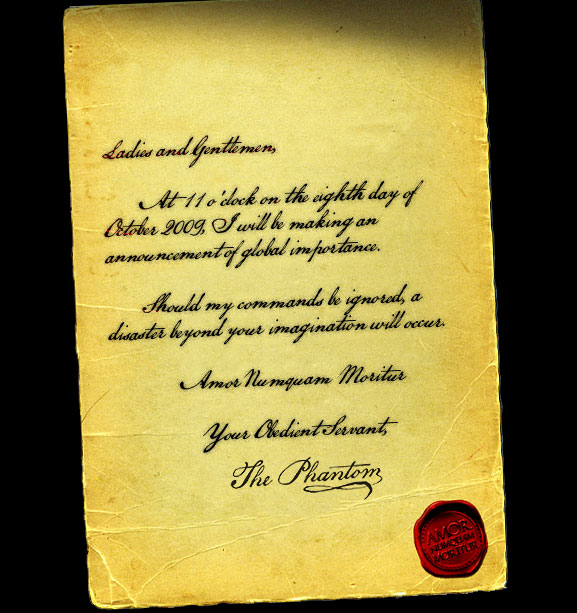 Ladies and Gentlemen,
At 11 o'clock on the eighth day of
October 2009, I will be making an
announcement of global importance.
Should my commands be ignored, a
disaster beyond your imagination will occur.
Amor Numquam Moritur
Your Obedient Servant,
The Phantom
AMOR
NUMQUAM
MORITUR